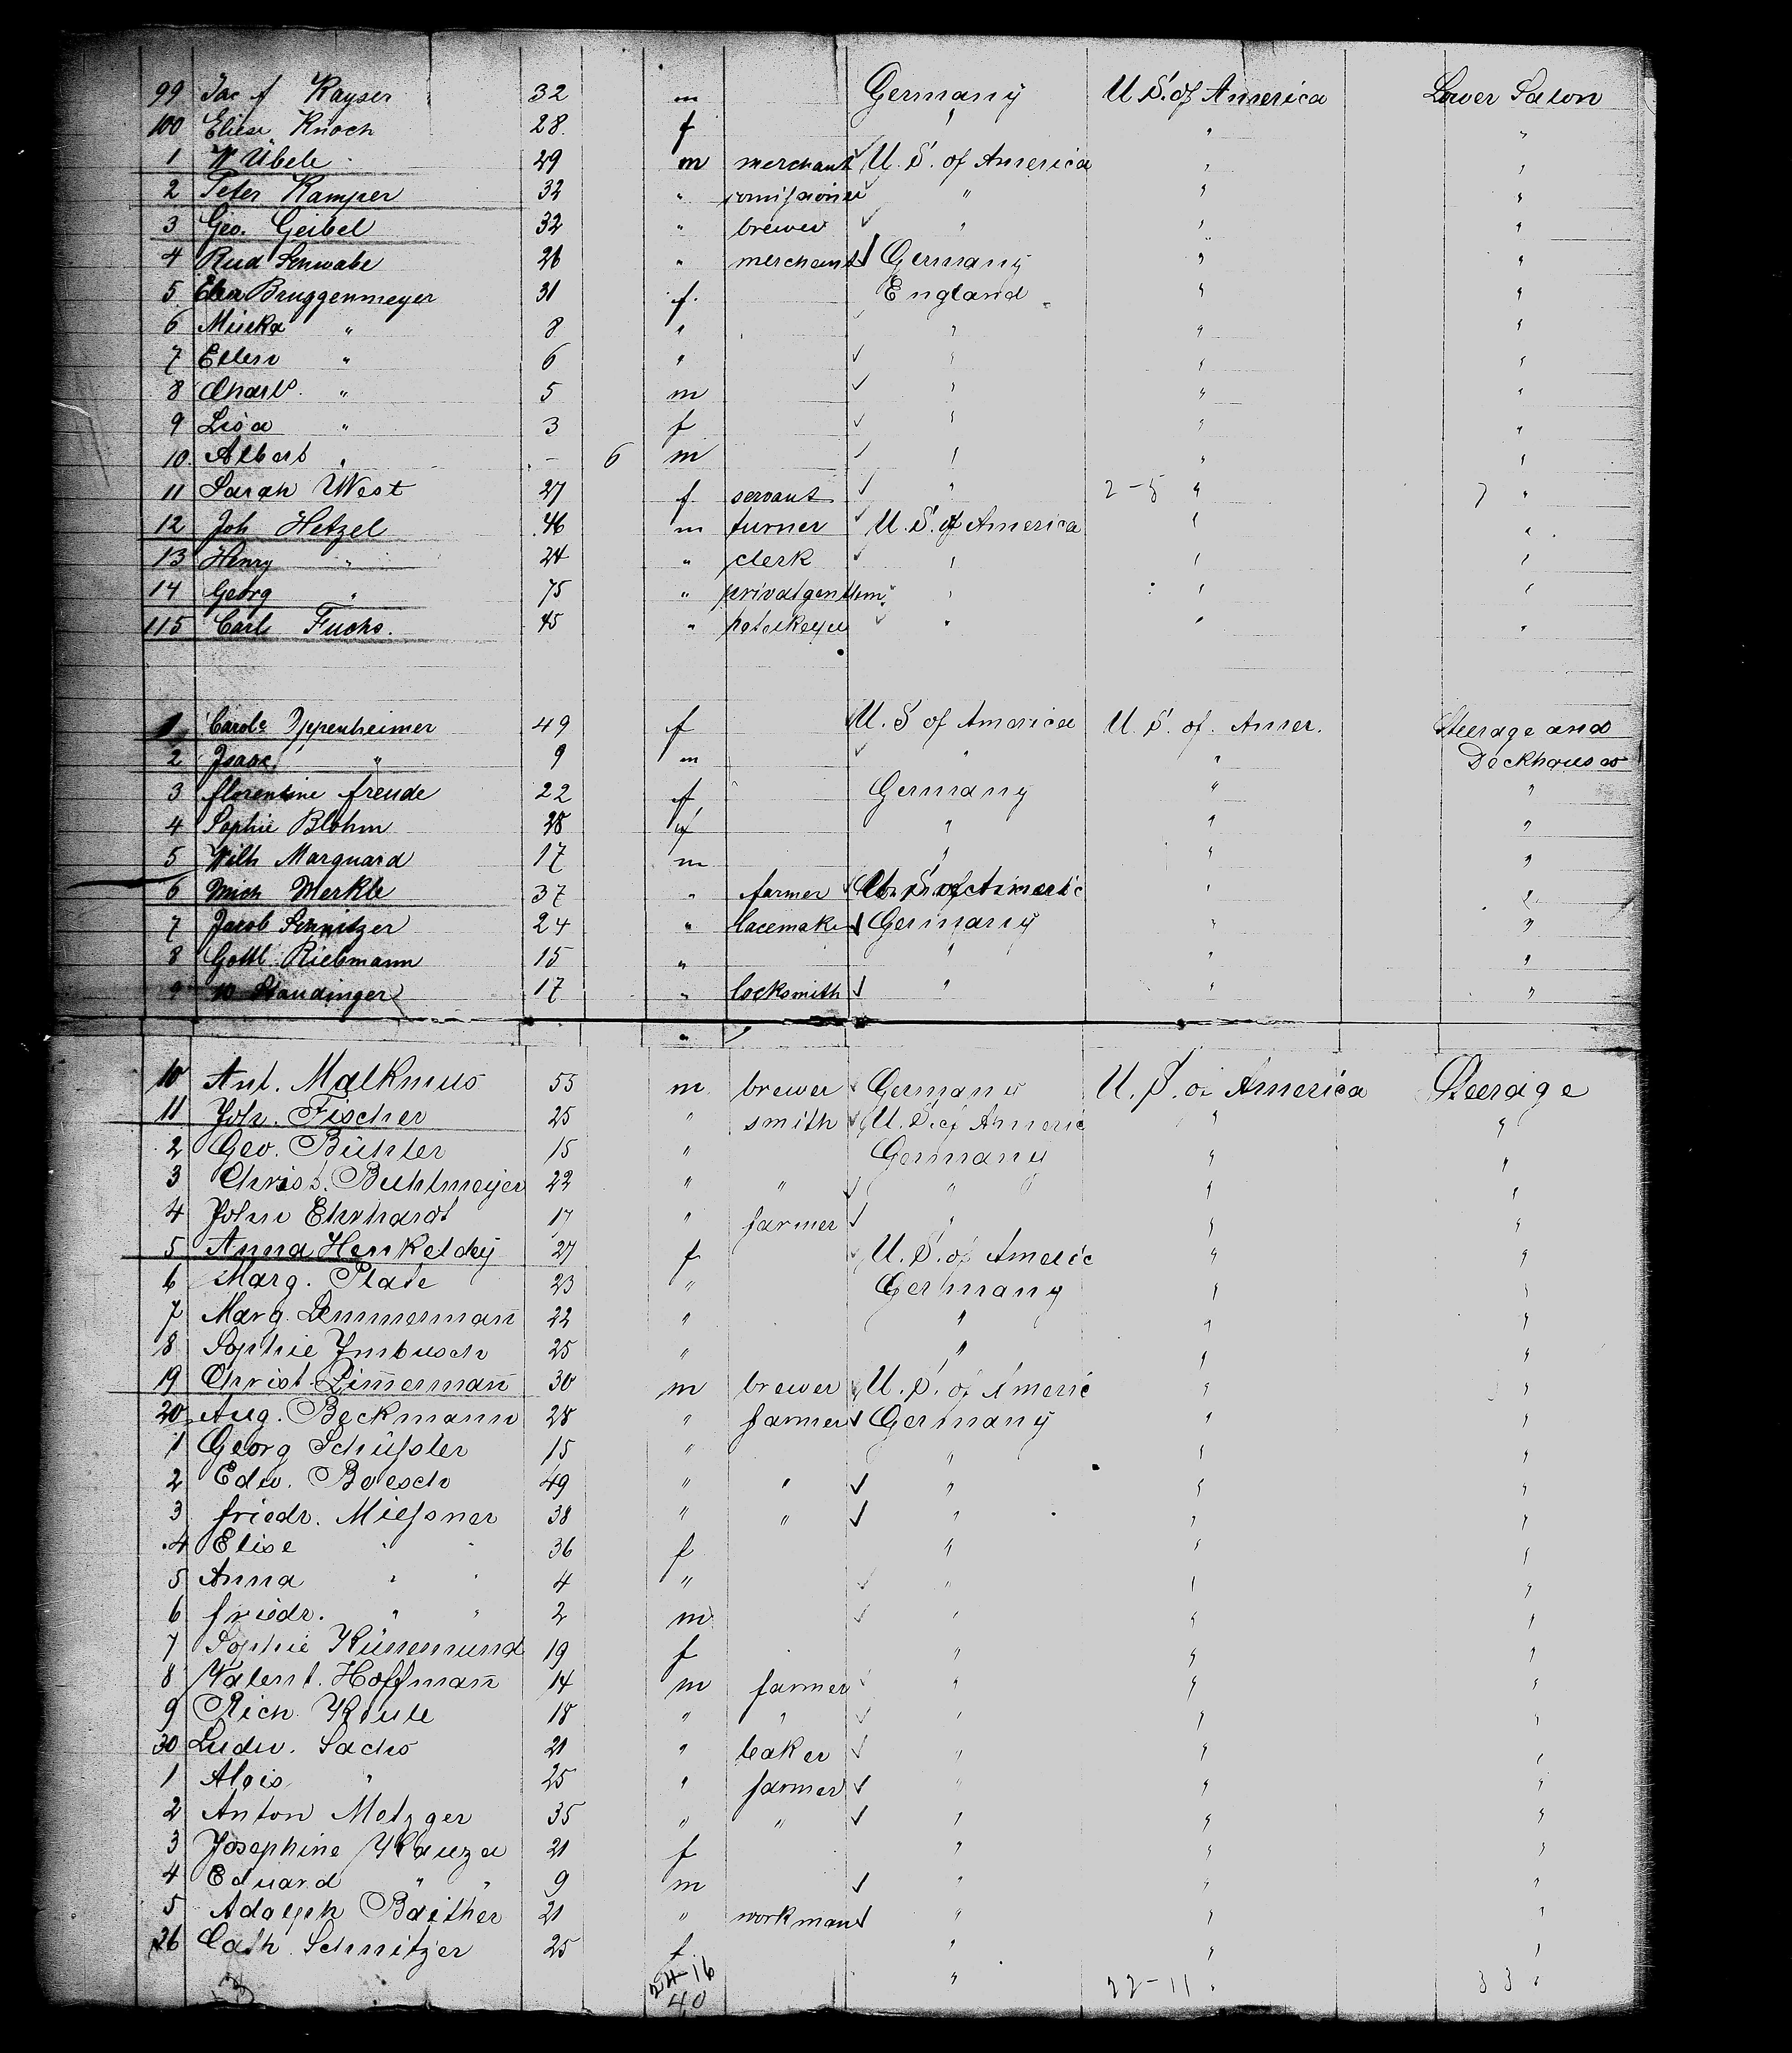 99 Jac f Kayser 32 m Germany U S. of America Lower Salon
100 Eliese Knoch 28. f " " "
1 W Übele 29 m merchant U. S. of America " "
2 Peter Kamper 32 " " " "
3 Geo. Geibel 32 " brewer " " "
4 Rud Schwabe 26 " merchant Germany " "
5 Bruggenmeyer 31 f. England " "
6 " 8 " " " "
7 Ellen " 6 " " " "
8 Charls. " 5 m " " "
9 Lisa " 3 f " " "
10. Albert " - 6 m " " "
11 Sarah West 27 f servant " 2-5 " 7 "
12 Joh Hetzel 46 m turner U. S. of America " "
13 Henry " 24 " clerk " " "
14 Georg " 75 " privatgentlem " " "
115 Carl Fuchs. 45 " " " "
1 Carole Oppenheimer 49 f U. S of America U. S. of. Amer. Steerage and
2 Isaac " 9 m " " Deckhouse
3 florentine freude 22 f Germany " "
4 Sophie Blohm 28 f " " "
5 Wilh Marquard 17 m " " "
6 Mich Merkle 37 " farmer U. S. of Americ " "
7 Jacob Schnitzer 24 " lacemaker Germany " "
8 Gottl. Riebmann 15 " " " "
9 Staudinger 17 " locksmith " " "
"
10 Ant. Malkmus 55 m. brewer Germany U. S. of America Steerage
11 Joh. Fischer 25 " smith U. S. of Americ " "
2 Geo. Bühler 15 " Germany " "
3 Christ. Buhlmeyer 22 " " " " "
4 John Ehrhardt 17 " farmer " " "
5 Anna Henkeldey 27 f U. S. of Americ " "
6 Marg. Plate 23 " Germany " "
7 Marg. Lemmermañ 22 " " " "
8 Sophie Imbusch 25 " " " "
19 Christ. Zim̄ermañ 30 m brewer U. S. of Americ " "
20 Aug. Beckmann 28 " farmer Germany " "
1 Georg Schüssler 15 " " " "
2 Edw. Boesch 49 " " " " "
3 friedr. Miessner 38 " " " " "
4 Elise " " 36 f " " "
5 Anna " " 4 " " " "
6 friedr. " " 2 m " " "
7 Sophie Künemund 19 f " " "
8 Valent. Hoffmañ 14 m farmer " " "
9 Rich. 18 " " " " "
30 Ludw. Sachs 21 " baker " " "
1 Alois " 25 " farmer " " "
2 Anton Metzger 35 " " " " "
3 Josephine 21 f " " "
4 Eduard " " 9 m " " "
5 Adolph Baither 21 " workman " " "
26 Cath. Schnitzer 25 f. " " "
24-16 " 22-11 " 33 "
40